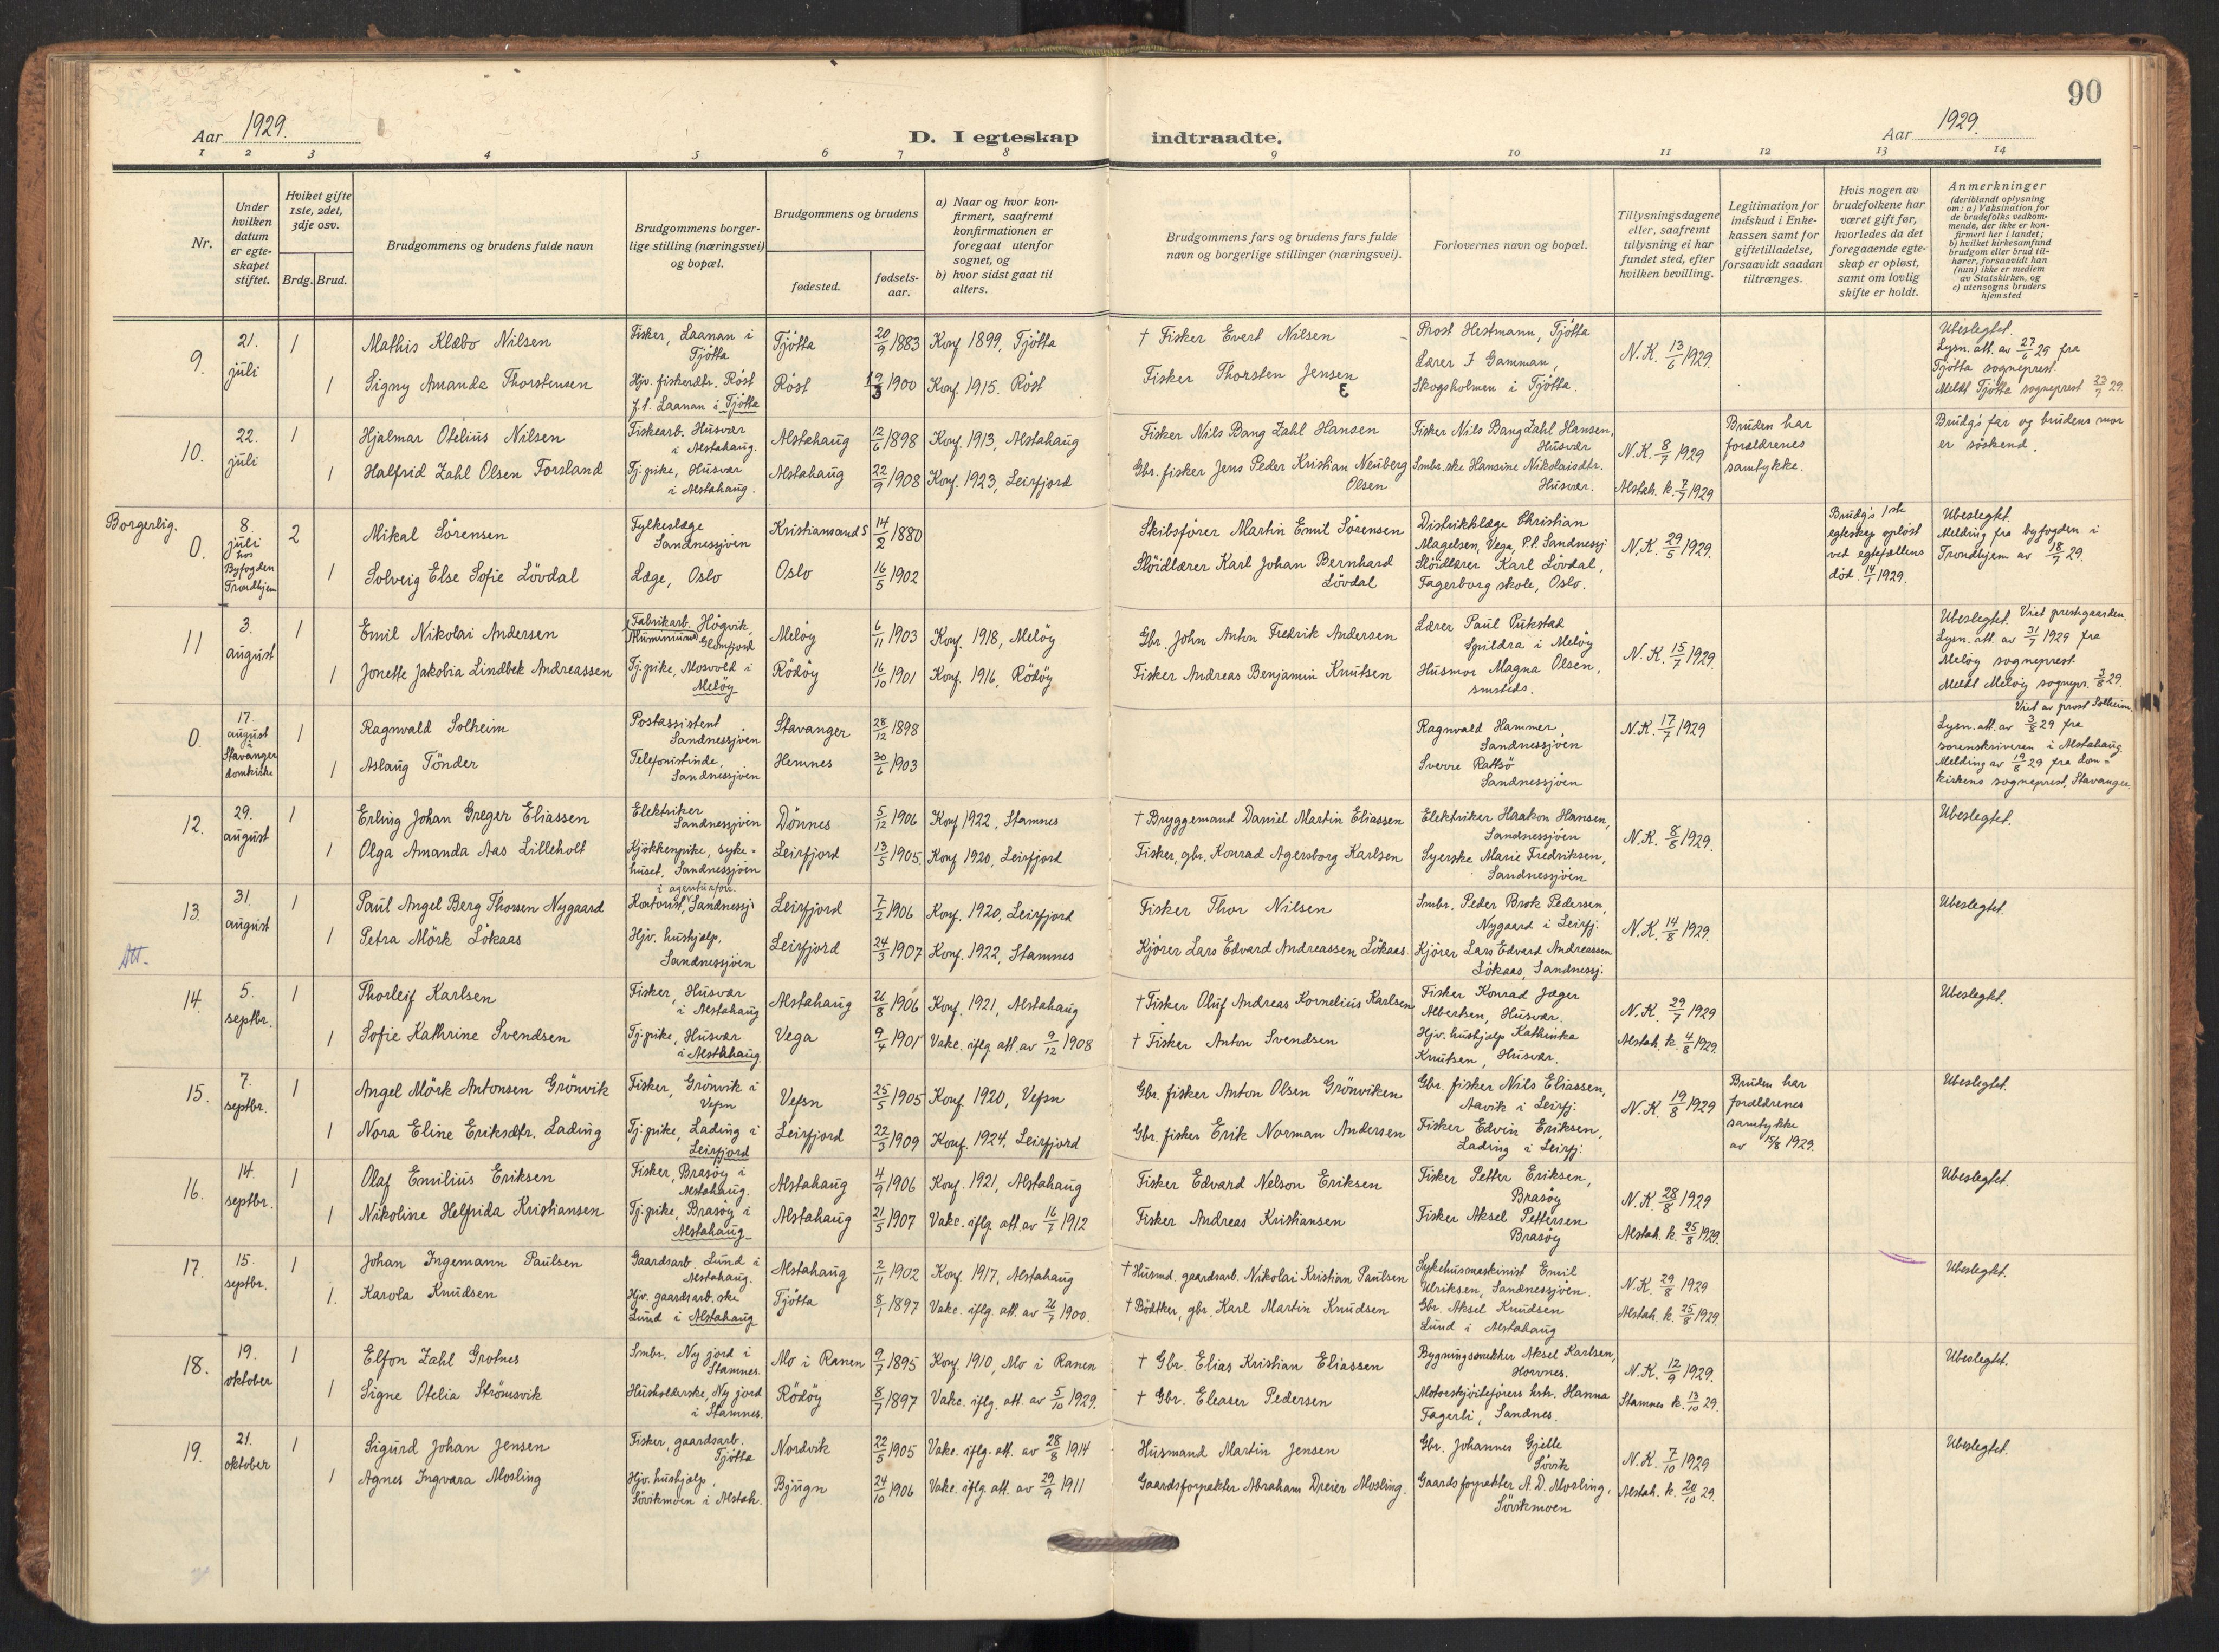 90
Aar 1929.
D. I egteskap indtraadte.
Aar 1929.
1 2 3 4 5 6 7 8 9 10 11 12 13 14
Nr.
Under hvilken datum er egte-skapet stiftet.
Hviket gifte 1ste, 2det, 3dje osv.
Brdg. Brud.
Brudgommens og brudens fulde navn
Brudgommens borger-lige stilling (næringsvei) og bopæl.
Brudgommens og brudens
fødested.
fødsels-aar.
a) Naar og hvor kon-firmert, saafremt konfirmationen er foregaat utenfor sognet, og
b) hvor sidst gaat til alters.
Brudgommens fars og brudens fars fulde navn og borgerlige stillinger (næringsvei).
Forlovernes navn og bopæl.
Tillysningsdagene eller, saafremt tillysning ei har fundet sted, efter hvilken bevilling.
Legitimation for indskud i Enke-kassen samt for giftetilladelse, forsaavidt saadan tiltrænges.
Hvis nogen av brudefolkene har været gift før, hvorledes da det foregaaende egte-skap er opløst, samt om lovlig skifte er holdt.
Anmerkninger (deriblandt oplysning om: a) Vaksination for de brudefolks vedkom-mende, der ikke er kon-firmert her i landet; b) hvilket kirkesamfund brudgom eller brud til-hører, forsaavidt han (hun) ikke er medlem av Statskirken, og c) utensogns bruders hjemsted
9. 21. juli 1 Mathis Klæbo Nilsen Fisker, Laanan i Tjøtta Tjøtta 20/9 1883 Konf 1899, Tjøtta † Fisker Evert Nilsen Prost Hestmann, Tjøtta N.K. 13/6 1929. Ubeslegtet. Lysn. att. av 27/6 29 fra Tjøtta sogneprest.
1 Signy Amanda Thorstensen Hjv. fiskerdtr. Röst f.t. Laanan i Tjøtta Röst 19/3 1900 Konf. 1915. Röst Fisker Thorsten Jensen Lærer J Gamman, Skogsholmen i Tjøtta. Meldt Tjøtta sogneprest 23/7 29.
10. 22. juli 1 Hjalmar Otelius Nilsen Fiskearb. Husvær i Alstahaug. Alstahaug 12/6 1898 Konf. 1913, Alstahaug Fisker Nils Bang Zahl Hansen Fisker Nils Bang Zahl Hansen, Husvær N.K. 8/7 1929 Bruden har forældrenes samtykke. Brudg's far og brudens mor er söskend.
1 Halfrid Zahl Olsen Forsland Tj. pike, Husvær i Alstahaug. Alstahaug 22/9 1908 Konf. 1923, Leirfjord Gbr. fisker Jens Peder Kristian Neuberg Olsen Smbr. ske Hansine Nikolaisdtr. Husvær. Alstah. k. 7/7 1929
Borgerlig. 0. 8. juli hos Byfogden Trondhjem 2 Mikal Sörensen Fylkeslæge Sandnessjöen Kristiansand S 14/2 1880 Skibsförer Martin Emil Sörensen Distriktslæge Christian Magelsen, Vega, P.t. Sandnessj. N.K. 29/5 1929. Brudg's 1ste egteskep oplöst ved egtefællens död. 14/7 1929. Ubeslegtet. Melding fra byfogden i Trondhjem av 18/7 29.
1 Solveig Else Sofie Lövdal Læge, Oslo Oslo 16/5 1902 Slöidlærer Karl Johan Bernhard Lövdal Slöidlærer Karl Lövdal, Fagerborg skole, Oslo.
11 3. august 1 Emil Nikolai Andersen Fabrikarb. Högvik, Aluminium Glomfjord Melöy 6/11 1903 Konf. 1918, Melöy Gbr. John Anton Fredrik Andersen Lærer Paul Pukstad Spildra i Melöy N.K. 15/7 1929. Ubeslegtet. Viet prestgaarden. Lysn. att. av 31/7 1929 fra Melöy sogneprest.
1 Jonette Jakobia Lindbek Andreassen Tj. pike, Mosvold i Melöy Rödöy 16/10 1901 Konf. 1916, Rödöy Fisker Andreas Benjamin Knutsen Husmor Magna Olsen, smsteds. Meldt Melöy sognepr. 3/8 29.
0. 17. august i Stavanger domkirke 1 Ragnvald Solheim Postassistent Sandnessjöen Stavanger 28/12 1898 Ragnvald Hammer, Sandnessjöen N.K. 17/7 1929 Viet av prost Solheim. Lysn. att. av 3/8 29 fra sorenskriveren i Alstahaug.
1 Aslaug Tönder Telefonistinde, Sandnessjöen Hemnes 30/6 1903 Sverre Rattsö Sandnessjöen Melding av 19/8 29 fra dom-kirkens sogneprest, Stavanger.
12. 29. august 1 Erling Johan Greger Eliassen Elektriker Sandnessjöen Dönnes 5/12 1906 Konf 1922, Stamnes † Bryggemand Daniel Martin Eliassen Elektriker Haakon Hansen, Sandnessjöen N.K. 8/8 1929. Ubeslegtet.
1 Olga Amanda Aas Lilleholt Kjökkenpike, syke-huset, Sandnessjöen Leirfjord 13/5 1905. Konf 1920, Leirfjord Fisker, gbr. Konrad Agersborg Karlsen Syerske Marie Fredriksen, Sandnessjöen
13. 31. august 1 Paul Angel Berg Thorsen Nygaard Kontorist, i agenturforr. Sandnessj. Leirfjord 7/2 1906 Konf. 1920, Leirfjord Fisker Thor Nilsen Smbr. Peder Brok Pedersen, Nygaard i Leirfj. N.K. 14/8 1929. Ubeslegtet.
Att. 1 Petra Mörk Lökaas Hjv. hushjælp, Sandnessjöen Leirfjord 24/3 1907 Konf. 1922, Stamnes Kjörer Lars Edvard Andreassen Lökaas. Kjörer Lars Edvard Andreassen Lökaas, Sandnessj.
14. 5. septbr. 1 Thorleif Karlsen Fisker, Husvær i Alstahaug Alstahaug 26/8 1906 Konf. 1921, Alstahaug † Fisker Oluf Andreas Kornelius Karlsen Fisker Konrad Jæger Albertsen, Husvær. N.K. 29/7 1929 Ubeslegtet.
1 Sofie Kathrine Svendsen Tj. pike, Husvær i Alstahaug Vega 9/4 1901 Vakc. iflg. att. av 9/12 1908 † Fisker Anton Svendsen Hjv. hushjelp Kathinka Knutsen, Husvær. Alstah. k. 4/8 1929.
15. 7. septbr. 1 Angel Mörk Antonsen Grönvik Fisker, Grönvik i Vefsn Vefsn 25/5 1905 Konf. 1920, Vefsn Gbr. fisker Anton Olsen Grönviken Gbr. fisker Nils Eliassen, Aavik i Leirfj. N.K. 19/8 1929 Bruden har forældrenes samtykke av 15/8 1929. Ubeslegtet.
1 Nora Eline Eriksdtr. Lading Tj. pike, Lading i Leirfjord Leirfjord 22/3 1909 Konf. 1924, Leirfjord Gbr. fisker Erik Norman Andersen Fisker Edvin Eriksen, Lading i Leirfj.
16. 14. septbr. 1 Olaf Emilius Eriksen Fisker, Brasöy i Alstahaug. Alstahaug 4/9 1906 Konf. 1921, Alstahaug Fisker Edvard Nelson Eriksen Fisker Petter Eriksen, Brasöy N.K. 28/8 1929 Ubeslegtet.
1 Nikoline Helfrida Kristiansen Tj. pike, Brasöy i Alstahaug Alstahaug 21/5 1907 Vakc. iflg. att. av 16/7 1912 Fisker Andreas Kristiansen Fisker Aksel Pettersen Brasöy Alstah. k. 25/8 1929.
17. 15. septbr. 1 Johan Ingemann Paulsen Gaardsarb. Lund i Alstahaug. Alstahaug 2/11 1902 Konf. 1917, Alstahaug † Husmd. gaardsarb. Nikolai Kristian Paulsen Sykehusmaskinist Emil Ulriksen, Sandnessjöen. N.K. 29/8 1929 Ubeslegtet.
1. Karola Knudsen Hjv. gaardsarb. ske Lund i Alstahaug Tjøtta 8/1 1897 Vakc. iflg. att. av 26/7 1900. † Bödtker, gbr. Karl Martin Knudsen Gbr. Aksel Knudsen Lund i Alstahaug Alstah. k. 25/8 1929.
18. 19. oktober 1 Elfon Zahl Grotnes Smbr. Ny jord i Stamnes. Mo i Ranen 9/7 1895 Konf. 1910, Mo i Ranen † Gbr. Elias Kristian Eliassen Bygningssnekker Aksel Karlsen, Horvnes. N.K. 12/9 1929. Ubeslegtet.
1 Signe Otelia Strömsvik Husholderske, Ny jord i Stamnes. Rödöy 8/7 1897 Vakc. iflg. att. av 5/10 1929. † Gbr. Eleaser Pedersen Motorskjöiteförers hstr. Hanna Fagerli, Sandnes. Stamnes k. 13/10 29.
19. 21. oktober 1 Sigurd Johan Jensen Fisker, gaardsarb. Tjøtta Nordvik 22/5 1905 Vakc. iflg. att. av 28/8 1914 Husmand Martin Jensen Gbr. Johannes Gjelle Sövik N.K. 7/10 1929 Ubeslegtet.
1 Agnes Ingvara Mosling Hjv. hushjælp, Sövikmoen i Alstah. Bjugn 24/10 1906 Vakc. iflg. att. av 29/9 1911 Gaardsforpakter Abraham Dreier Mosling. Gaardsforpakter A. D. Mosling, Sövikmoen Alstah. k. 20/10 29.